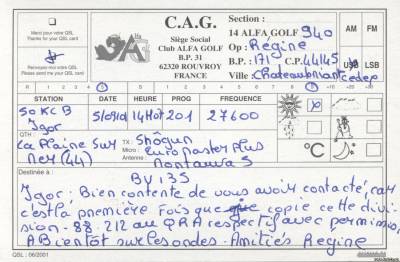 C.A.G.
Siège Social
Club ALFA GOLF
B.P. 31
62320 ROUVROY
FRANCE
Section :
14 ALFA GOLF 940
Op : Régine
B.P. : 171 C.P. 44145
Ville : Chateaubriant cedex
AM FM
USB LSB
Merci pour votre QSL
Thanks for your card
Renvoyez moi votre QSL
Please send me your QSL card
R 1 2 3 4 5
STATION DATE HEURE PROG FREQUENCE
50 KC B
Igor
5/09/0 14H01 201 27600
QTH :
La Plaine Sur
Mer (44)
TX : Shôgun
Micro : Euro master Plus
Antenne :
°C
Destinée à :
BV 135
Igor : Bien contente de vous avoir contacté, car
c'est la première fois que je copie cette divi-
sion - 88 - 212 au QRA respectif avec permission
A Bientôt sur les ondes - Amitiés Régine
QSL : 06/2001